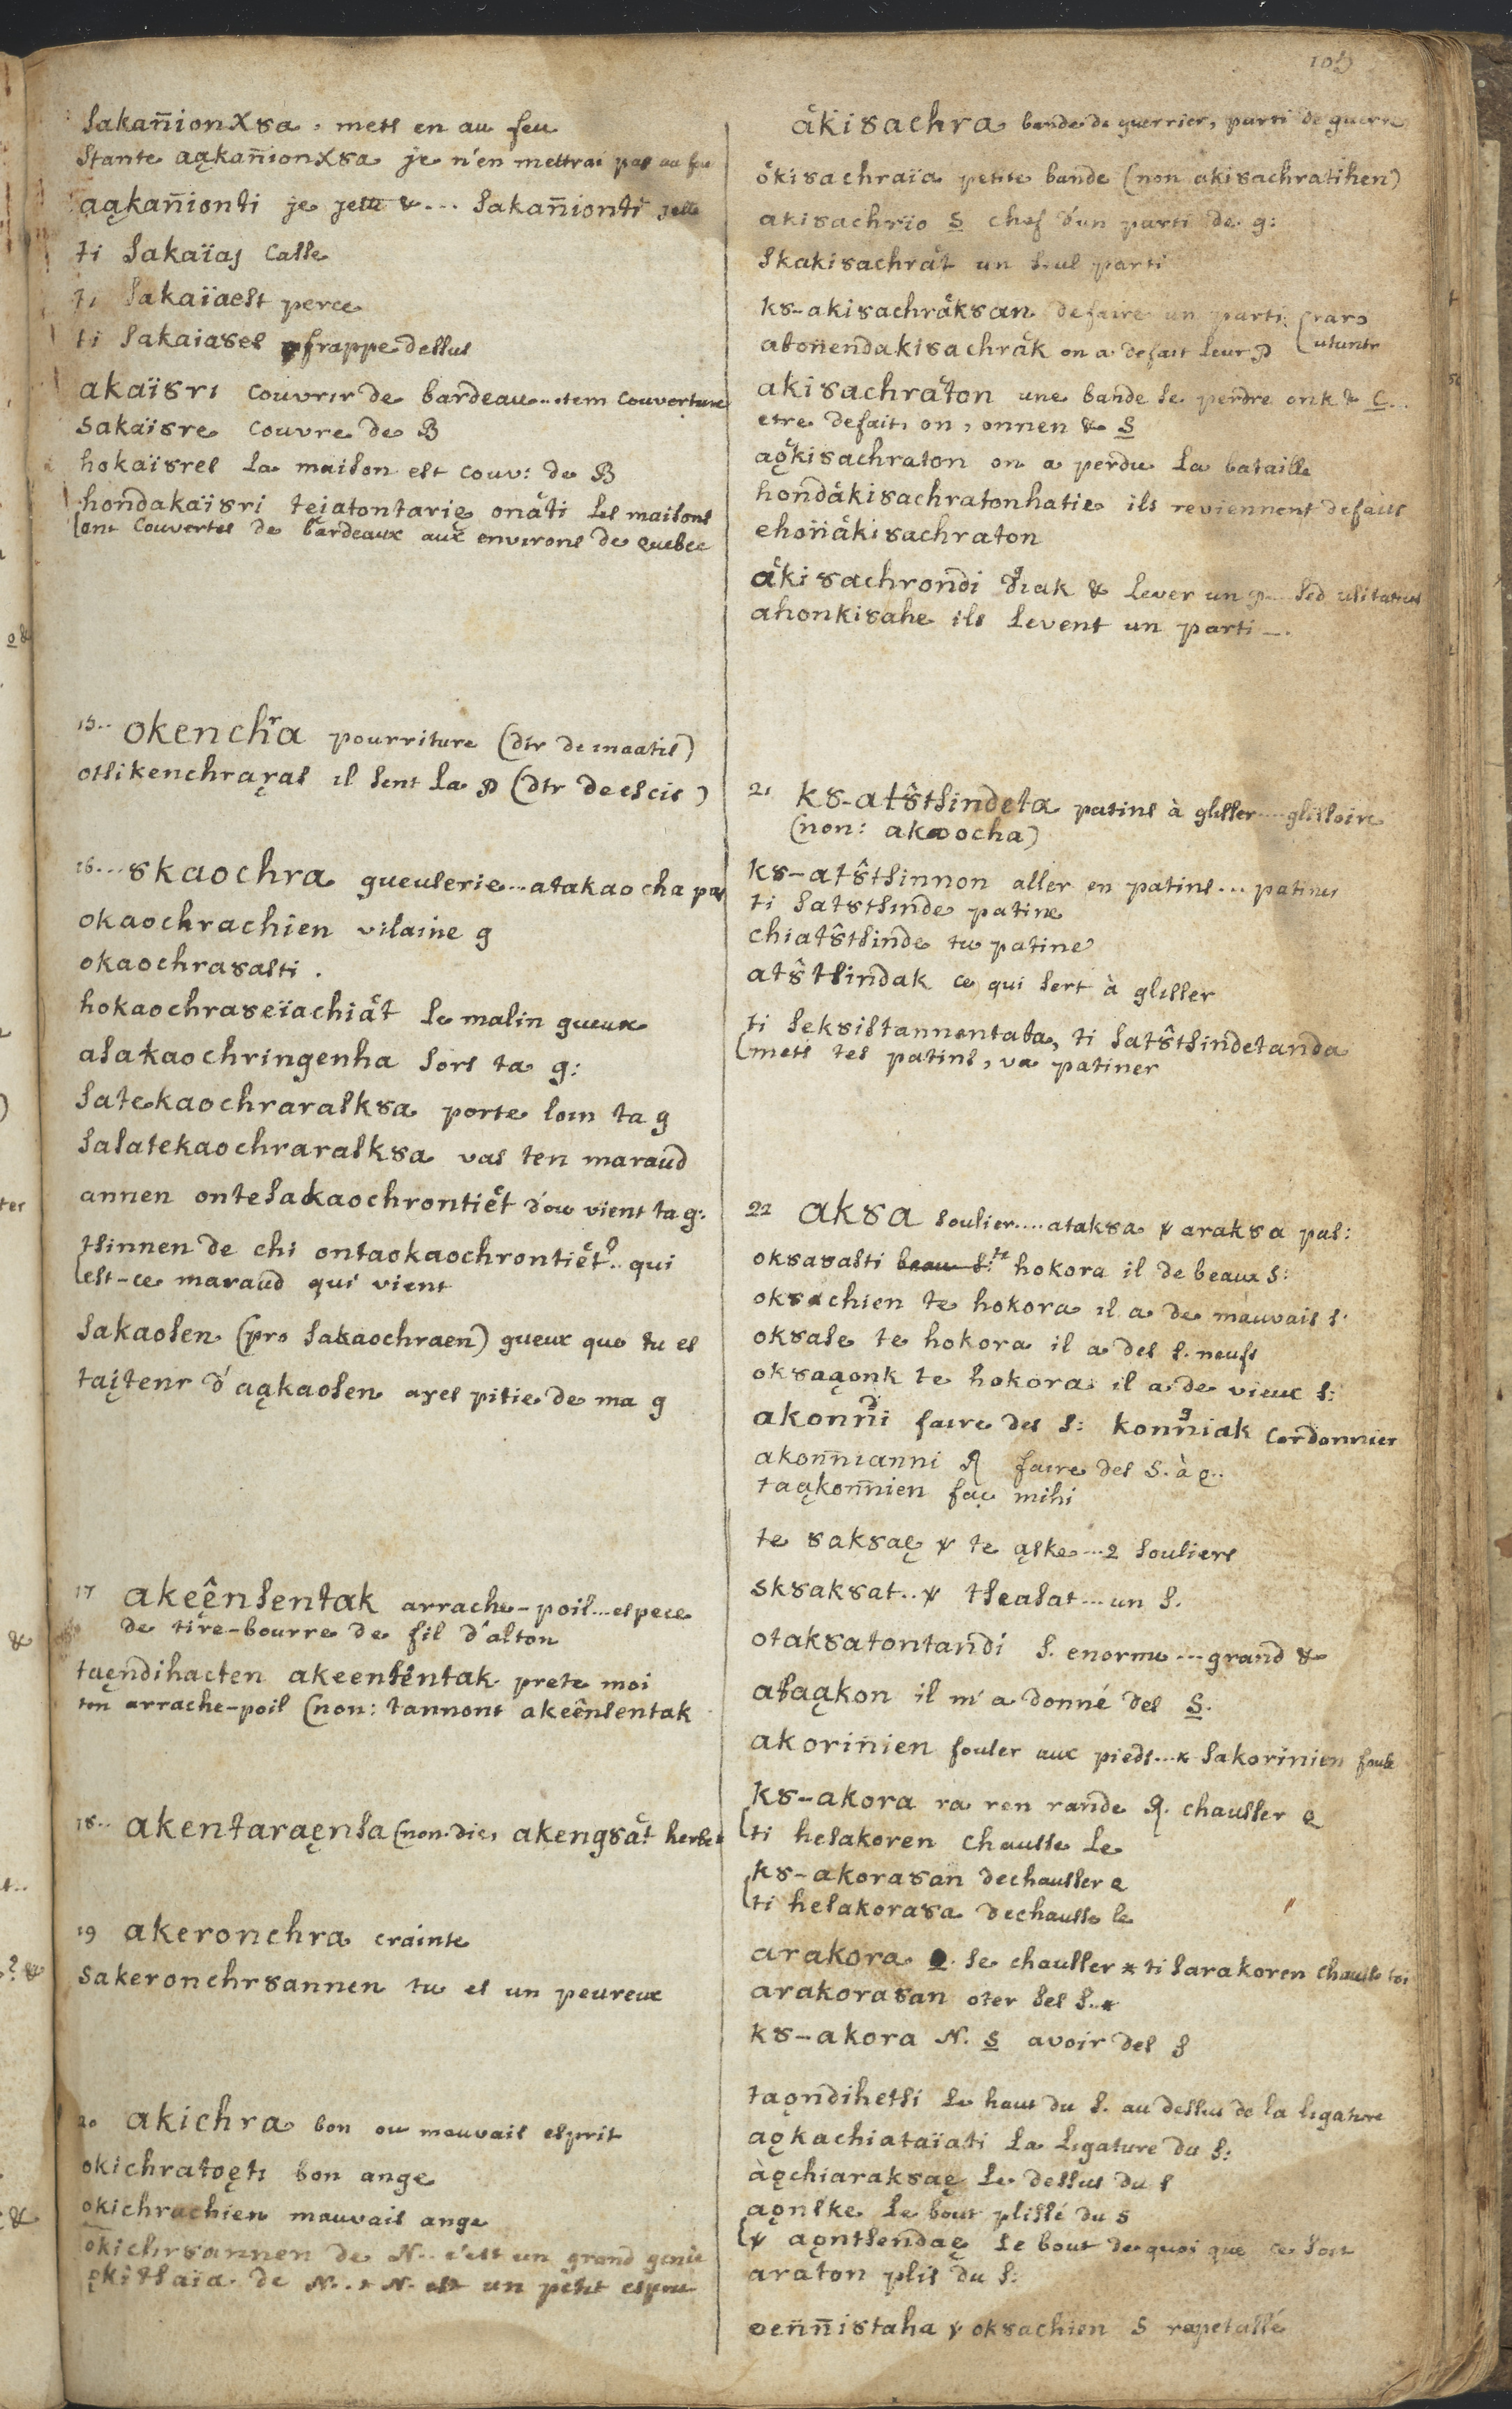 105
sakan̄ionxȣa, mets en au feu
stante aąkan̄ionxȣa je n'en mettrai pas au feu
aąkan̄ionti je jette &... sakan̄ionti jette
ti sakaïas casse
ti sakaïaest perce
ti sakaiaȣes frappe dessus
akaïȣri couvrir de bardeau.. item couverture
sakaïȣre couvre de B
hokaïȣres la maison est couv: de B
hon̄dakaïȣri teiatontarię onati les maisons
sont couvertes de bardeaux aux environs de quebec
15.. okenchra pourriture (dtr de maatis)
otsikenchraąas il sent la p (dtr de escis)
16... ȣkaochra gueuserie... atakaocha pas
okaochrachien vilaine g
okaochraȣasti.
hokaochraȣeïachiat le malin gueux
asakaochringenha sors ta g:
satekaochraraskȣa porte loin ta g
sasatekaochraraskȣa vas ten maraud
annen ontesakaochrontiet d'ou vient ta g:
tsinnen de chi ontaokaochrontiet?.. qui
est-ce maraud qui vient
sakaosen (pro sakaochraen) gueux que tu es
taįtenr d'aąkaosen ayes pitie de ma g
17 akeęnsentak arrache-poil... espece
de tire-bourre de fil d'alton
taęndihacten akeensentak prete moi
ton arrache-poil (non: tannont akeênsentak
18.. akentaraęnsa (non dic, akengȣat herbe
19 akeronchra crainte
sakeronchrȣannen tu es un peureux
20 akichra bon ou mauvais esprit
okichratoęti bon ange
okichrachien mauvais ange
okichrȣannen de N.. c'est un grand genie
okitsaïa de N.. & N. est un petit esprit
akiȣachra bande de guerrier, parti de guerre
okiȣachraïa petite bande (non akiȣachratihen)
akiȣachrïo S chef d'un parti de g:
skakiȣachrat un seul parti
kȣ-akiȣachrakȣan defaire un parti (raro
abon̄endakiȣachrak on a defait leur p utuntr
akiȣachraton une bande se perdre onk & C...
etre defait, on, onnen & S
aǫkiȣachraton on a perdu la bataille
hondakiȣachratonhatie ils reviennent defaits
ehon̄akiȣachraton
akiȣachron̄di diak & lever un p... sed usitatius
ahonkiȣahe ils levent un parti -.
21 kȣ-atȣ̂tsindeta patins à glisser.... glissoire
(non: akaocha)
kȣ-atȣ̂tsinnon aller en patins... patiner
ti satȣtsinde patine
chiatȣ̂tsinde tu patine
atȣ̂tsindak ce qui sert à glisser
ti seksistannontaba, ti satȣ̂tsindetanda
mets tes patins, va patiner
22 akȣa soulier.... atakȣa & arakȣa pas:
okȣaȣasti te hokora il de beaux s:
okȣachien te hokora il a de mauvais s:
okȣase te hokora il a des s. neufs
okȣaąonk te hokora il a de vieux s:
akon̄ni faire des s: kon̄niak cordonnier
akon̄nianni R faire des s. à q..
taąkon̄nien fac mihi
te ȣakȣaę & te ąske... 2 souliers
skȣakȣat.. & tseasat... un s.
otakȣatontandi s. enorme... grand &
abaąkon il m'a donné des S.
akorin̄ien fouler aux pieds... & sakorin̄ien foule
kȣ-akora ra ren rande R. chausser q
ti hesakoren chausse le
kȣ-akoraȣan dechausser q
ti hesakoraȣa dechausse le
arakora S. se chausser & ti sarakoren chausse toi
arakoraȣan oter ses s..&
kȣ-akora N. S avoir des s
taǫndihetsi le haut du s. au dessus de la ligature
aǫkachiataïati la ligature du s:
àǫchiarakȣaę le dessus du s
aǫnske le bout plissé du s
& aǫntsendaę le bout de quoi que ce soit
araton plis du s:
oen̄n̄iȣtaha & okȣachien s rapetassé